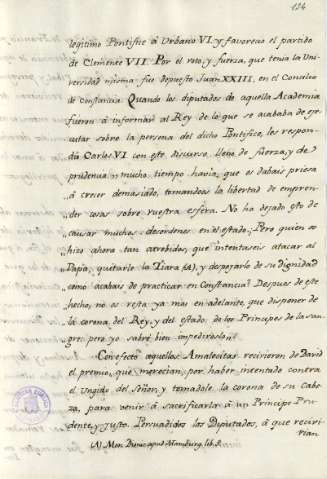 124
legitimo Pontifice á Urbano VI. y favorecio el partido
de Clemente VII. Por el voto, y fuerza, que tenia la Uni-
versidad misma fue depuesto Juan XXIII, en el Concilio
de Constancia. Quando los diputados de aquella Academia
fueron á informar al Rey de lo que se acababa de exe-
cutar sobre la persona del dicho Pontifice, les respon-
dió Carlos VI con este discurso, lleno de fuerza, y de
prudencia: mucho tiempo havia, que os dabais priesa
" á creer demasiado, tomandoos la libertad de empren-
" der cosas sobre vuestra esfera. No ha dexado esto de
" causar muchos desordenes en el estado; Pero quien os
" hizo ahora tan atrebidos, que intentaseis atacar al
" Papa, quitarle la Tiara (A), y despojarlo de su dignidad
" como acabais de practicar en Constancia? Despues de este
" hecho, no os resta ya mas en adelante, que disponer de
" la corona del Rey, y del estado de los Principes de la san-
" gre; pero yo sabré bien impediroslo.
Con efecto aquellos Amalecitas recivieron de David
el premio, que merecian, por haber intentado contra
el Ungido del Señor, y tomadole la corona de su cabe-
za, para venir á sacrificarla á un Principe Pru-
dente, y Justo. Persuadidos los Diputados, á que recivi-
rian
(A) Mon. Dionis. apud Maimburg. lib. 3.